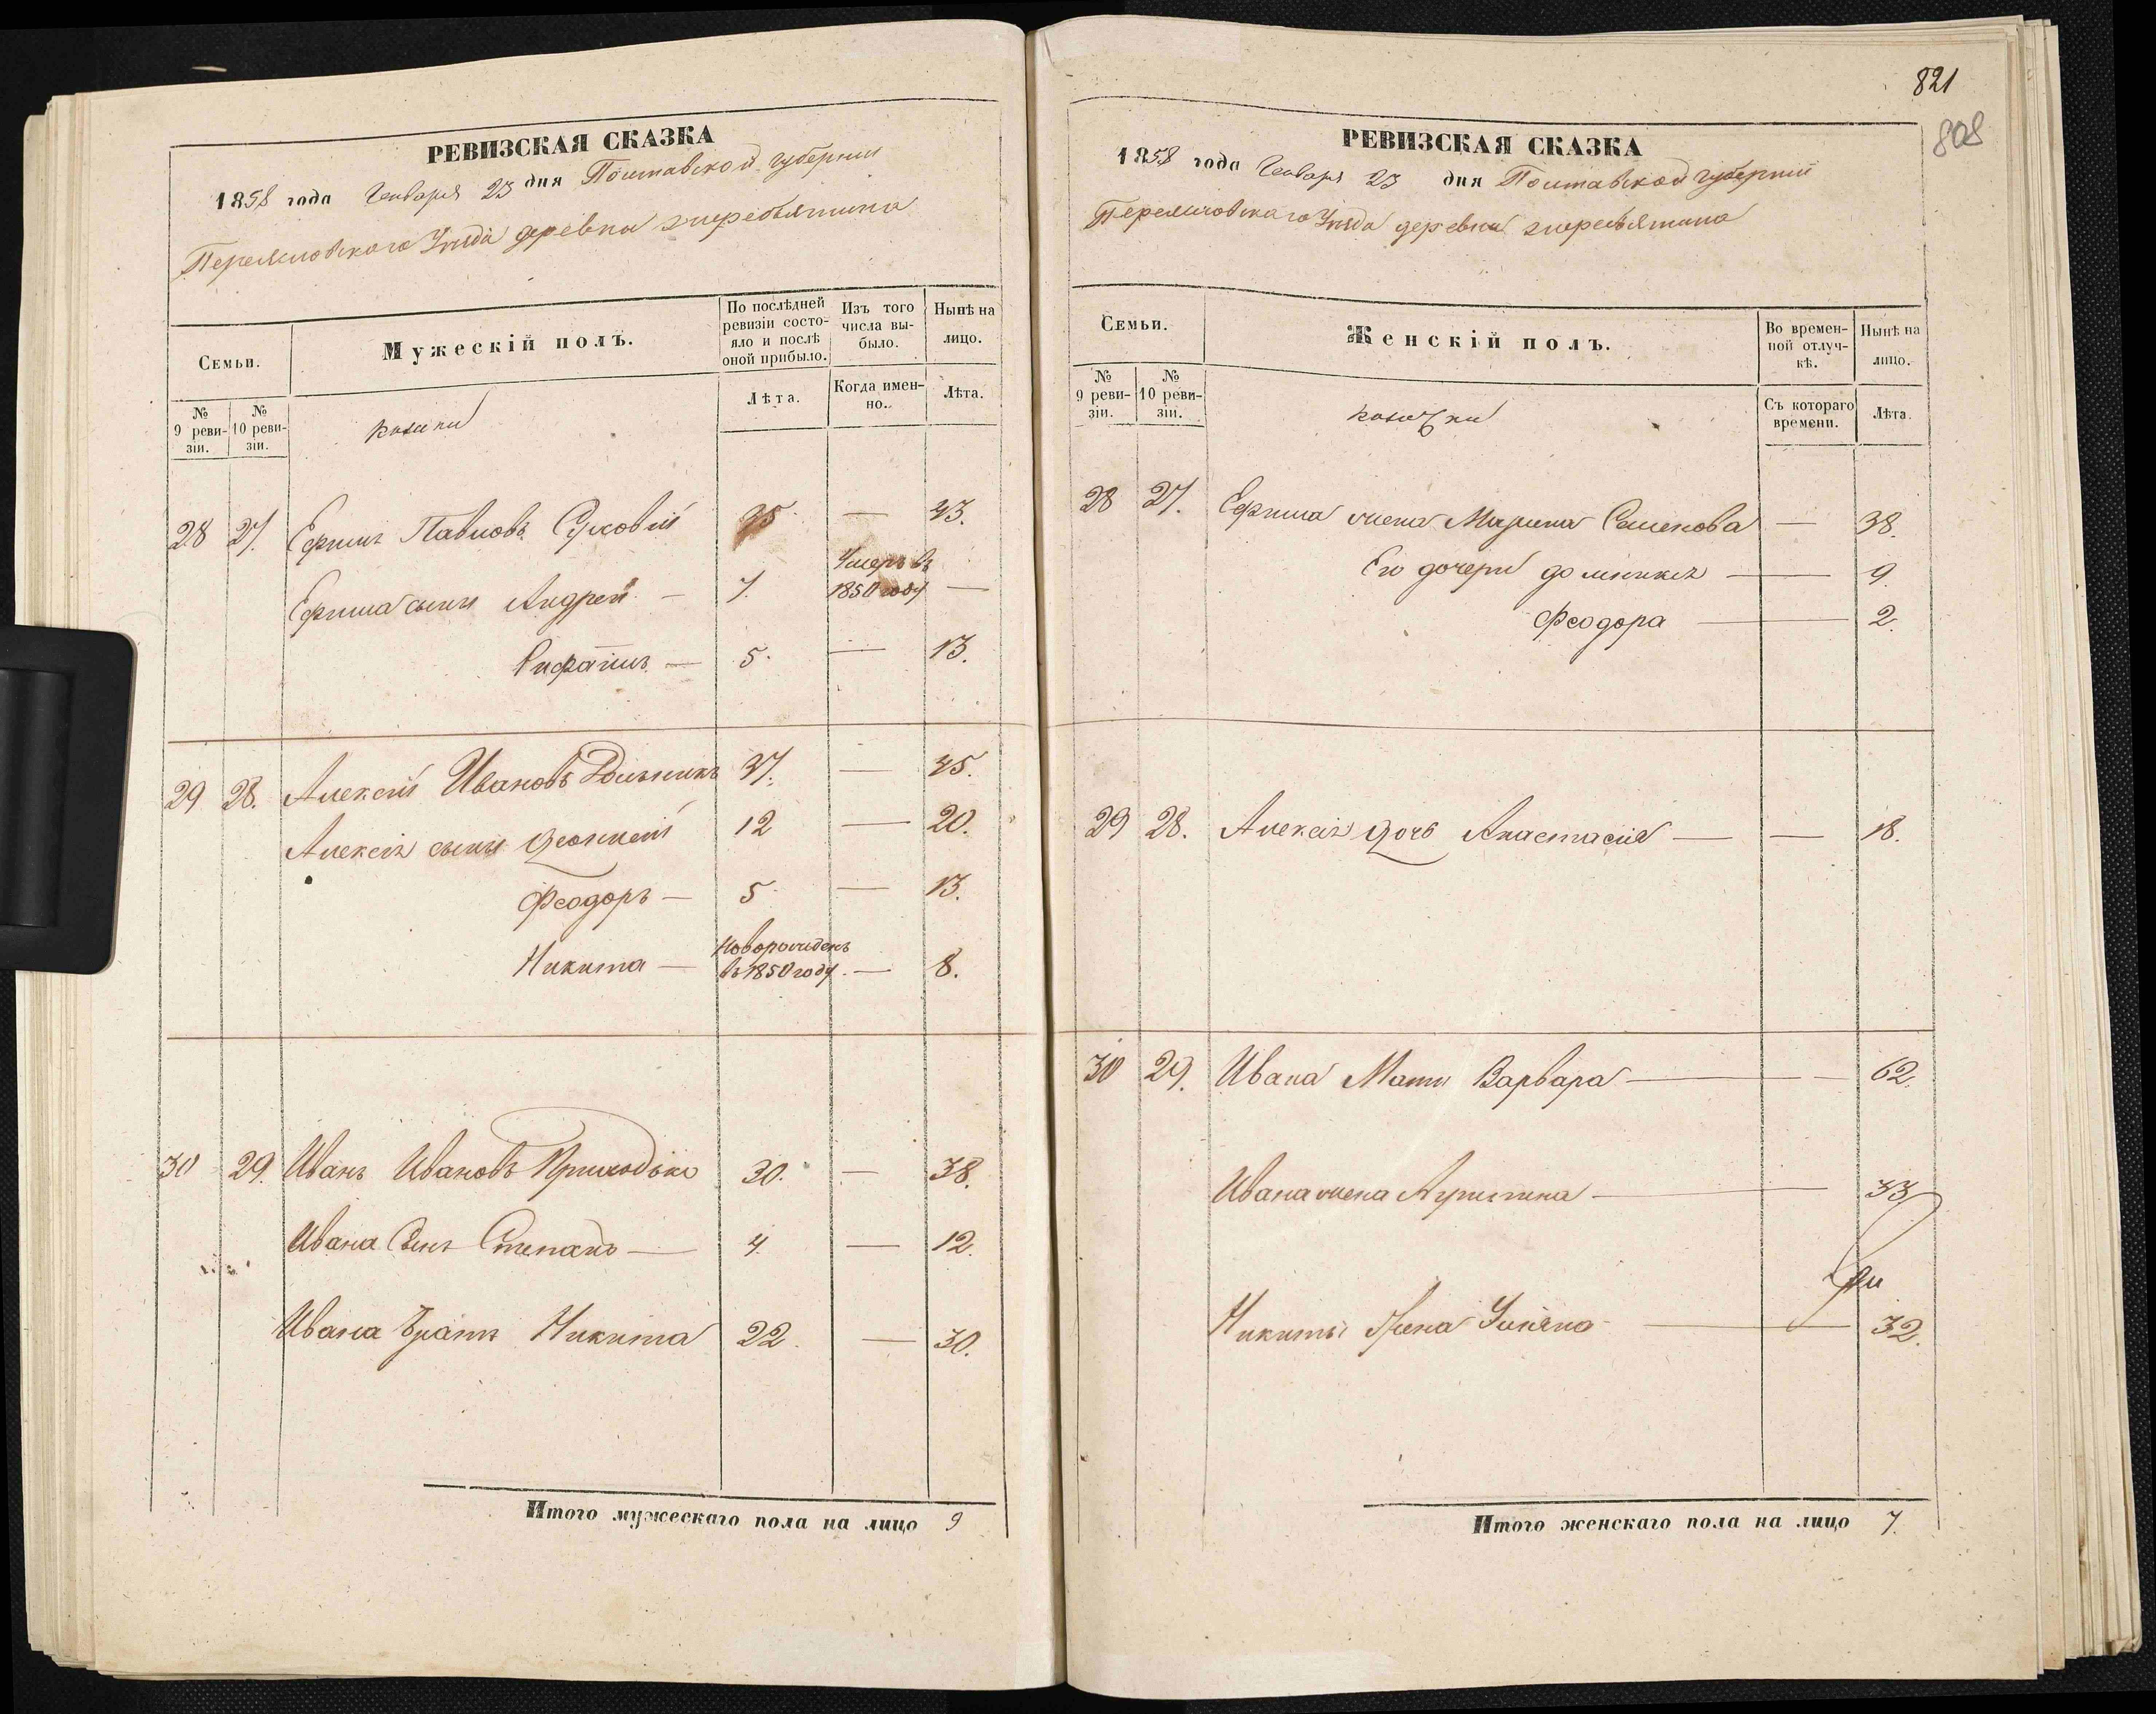 РЕВИЗСКАЯ СКАЗКА
1858 года Генваря 23 дня Полтавской губернии
Переясловского Уезда деревни
Семьи.
Мужескій полъ.
По послѣдней ревизіи состо-
яло и послѣ оной прибыло.
Изъ того числа вы-
было.
Нынѣ на лицо.
№ 9 реви-
зіи.
№ 10 реви-
зіи.
козаки
Лѣта.
Когда имен-
но.
Лѣта.
28 27. Ефимъ Павловъ 35 — 43.
Ефима сыны Андрей — 7. Умеръ въ 1850 году —
5. — 13.
29 28. Алексій Ивановъ 37. — 45.
Алексія сыны 12 — 20.
Феодоръ — 5 — 13.
Никита — Новорожденъ въ 1850 году. — 8.
30 29. Иванъ Ивановъ Приходько 30. — 38.
Ивана Сынъ Степанъ — 4. — 12.
Ивана Братъ Никита 22. — 30.
Итого мужескаго пола на лицо 9
821
808
РЕВИЗСКАЯ СКАЗКА
1858 года Генваря 23 дня Полтавской губерніи
Переясловскаго Уезда деревни
Семьи.
Женскій полъ.
Во времен-
ной отлуч-
кѣ.
Нынѣ на лицо.
№ 9 реви-
зіи.
№ 10 реви-
зіи.
козачки
Съ котораго времени.
Лѣта.
28 27. Ефима жена Марина Семенова — 38.
Его дочери Домникія — 9.
Феодора — 2.
29 28. Алексія дочь Анастасія — — 18.
30 29. Ивана Мати Варвара — — 62.
Ивана жена — 33
Никиты Жена Уліяна — 32.
Итого женскаго пола на лицо 7.